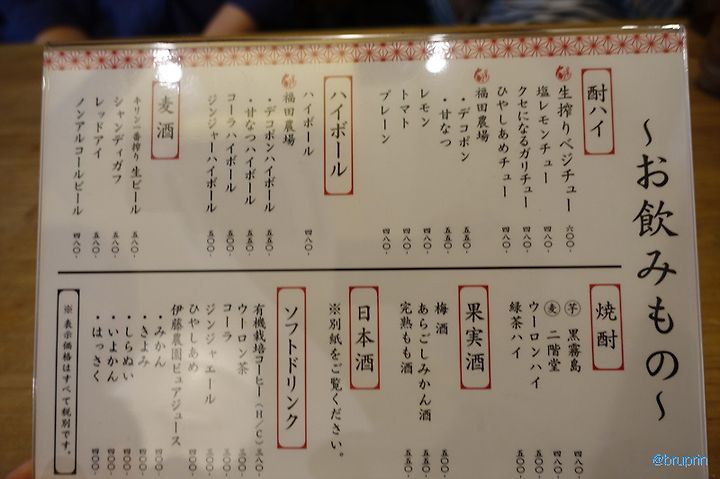 ~お飲みもの~
酎ハイ
生搾りベジチュー 六〇〇-
塩レモンチュー 四八〇-
クセになるガリチュー 四八〇-
ひやしあめチュー 四八〇-
福田農場
・デコポン 五五〇-
・甘なつ 五五〇-
レモン 四八〇-
トマト 四八〇-
プレーン 四八〇-
ハイボール
ハイボール 四八〇-
福田農場
・デコポンハイボール 五五〇-
・甘なつハイボール 五五〇-
コーラハイボール 五〇〇-
ジンジャーハイボール 五〇〇-
麦酒
キリン一番搾り生ビール 五八〇-
シャンディガフ 五八〇-
レッドアイ 五八〇-
ノンアルコールビール 四八〇-
焼酎
芋 黒霧島 四八〇-
麦 二階堂 四八〇-
ウーロンハイ 五〇〇-
緑茶ハイ 五〇〇-
果実酒
梅酒 五〇〇-
あらごしみかん酒 五五〇-
完熟もも酒 五五〇-
日本酒
※別紙をご覧ください。
ソフトドリンク
有機栽培コーヒー(H/C) 三八〇-
ウーロン茶 三〇〇-
コーラ 三〇〇-
ジンジャエール 三〇〇-
ひやしあめ 四〇〇-
伊藤農園ピュアジュース
・みかん 四〇〇-
・きよみ 四〇〇-
・しらぬい 四〇〇-
・いよかん 四〇〇-
・はっさく 四〇〇-
※表示価格はすべて税別です。
@bruprin